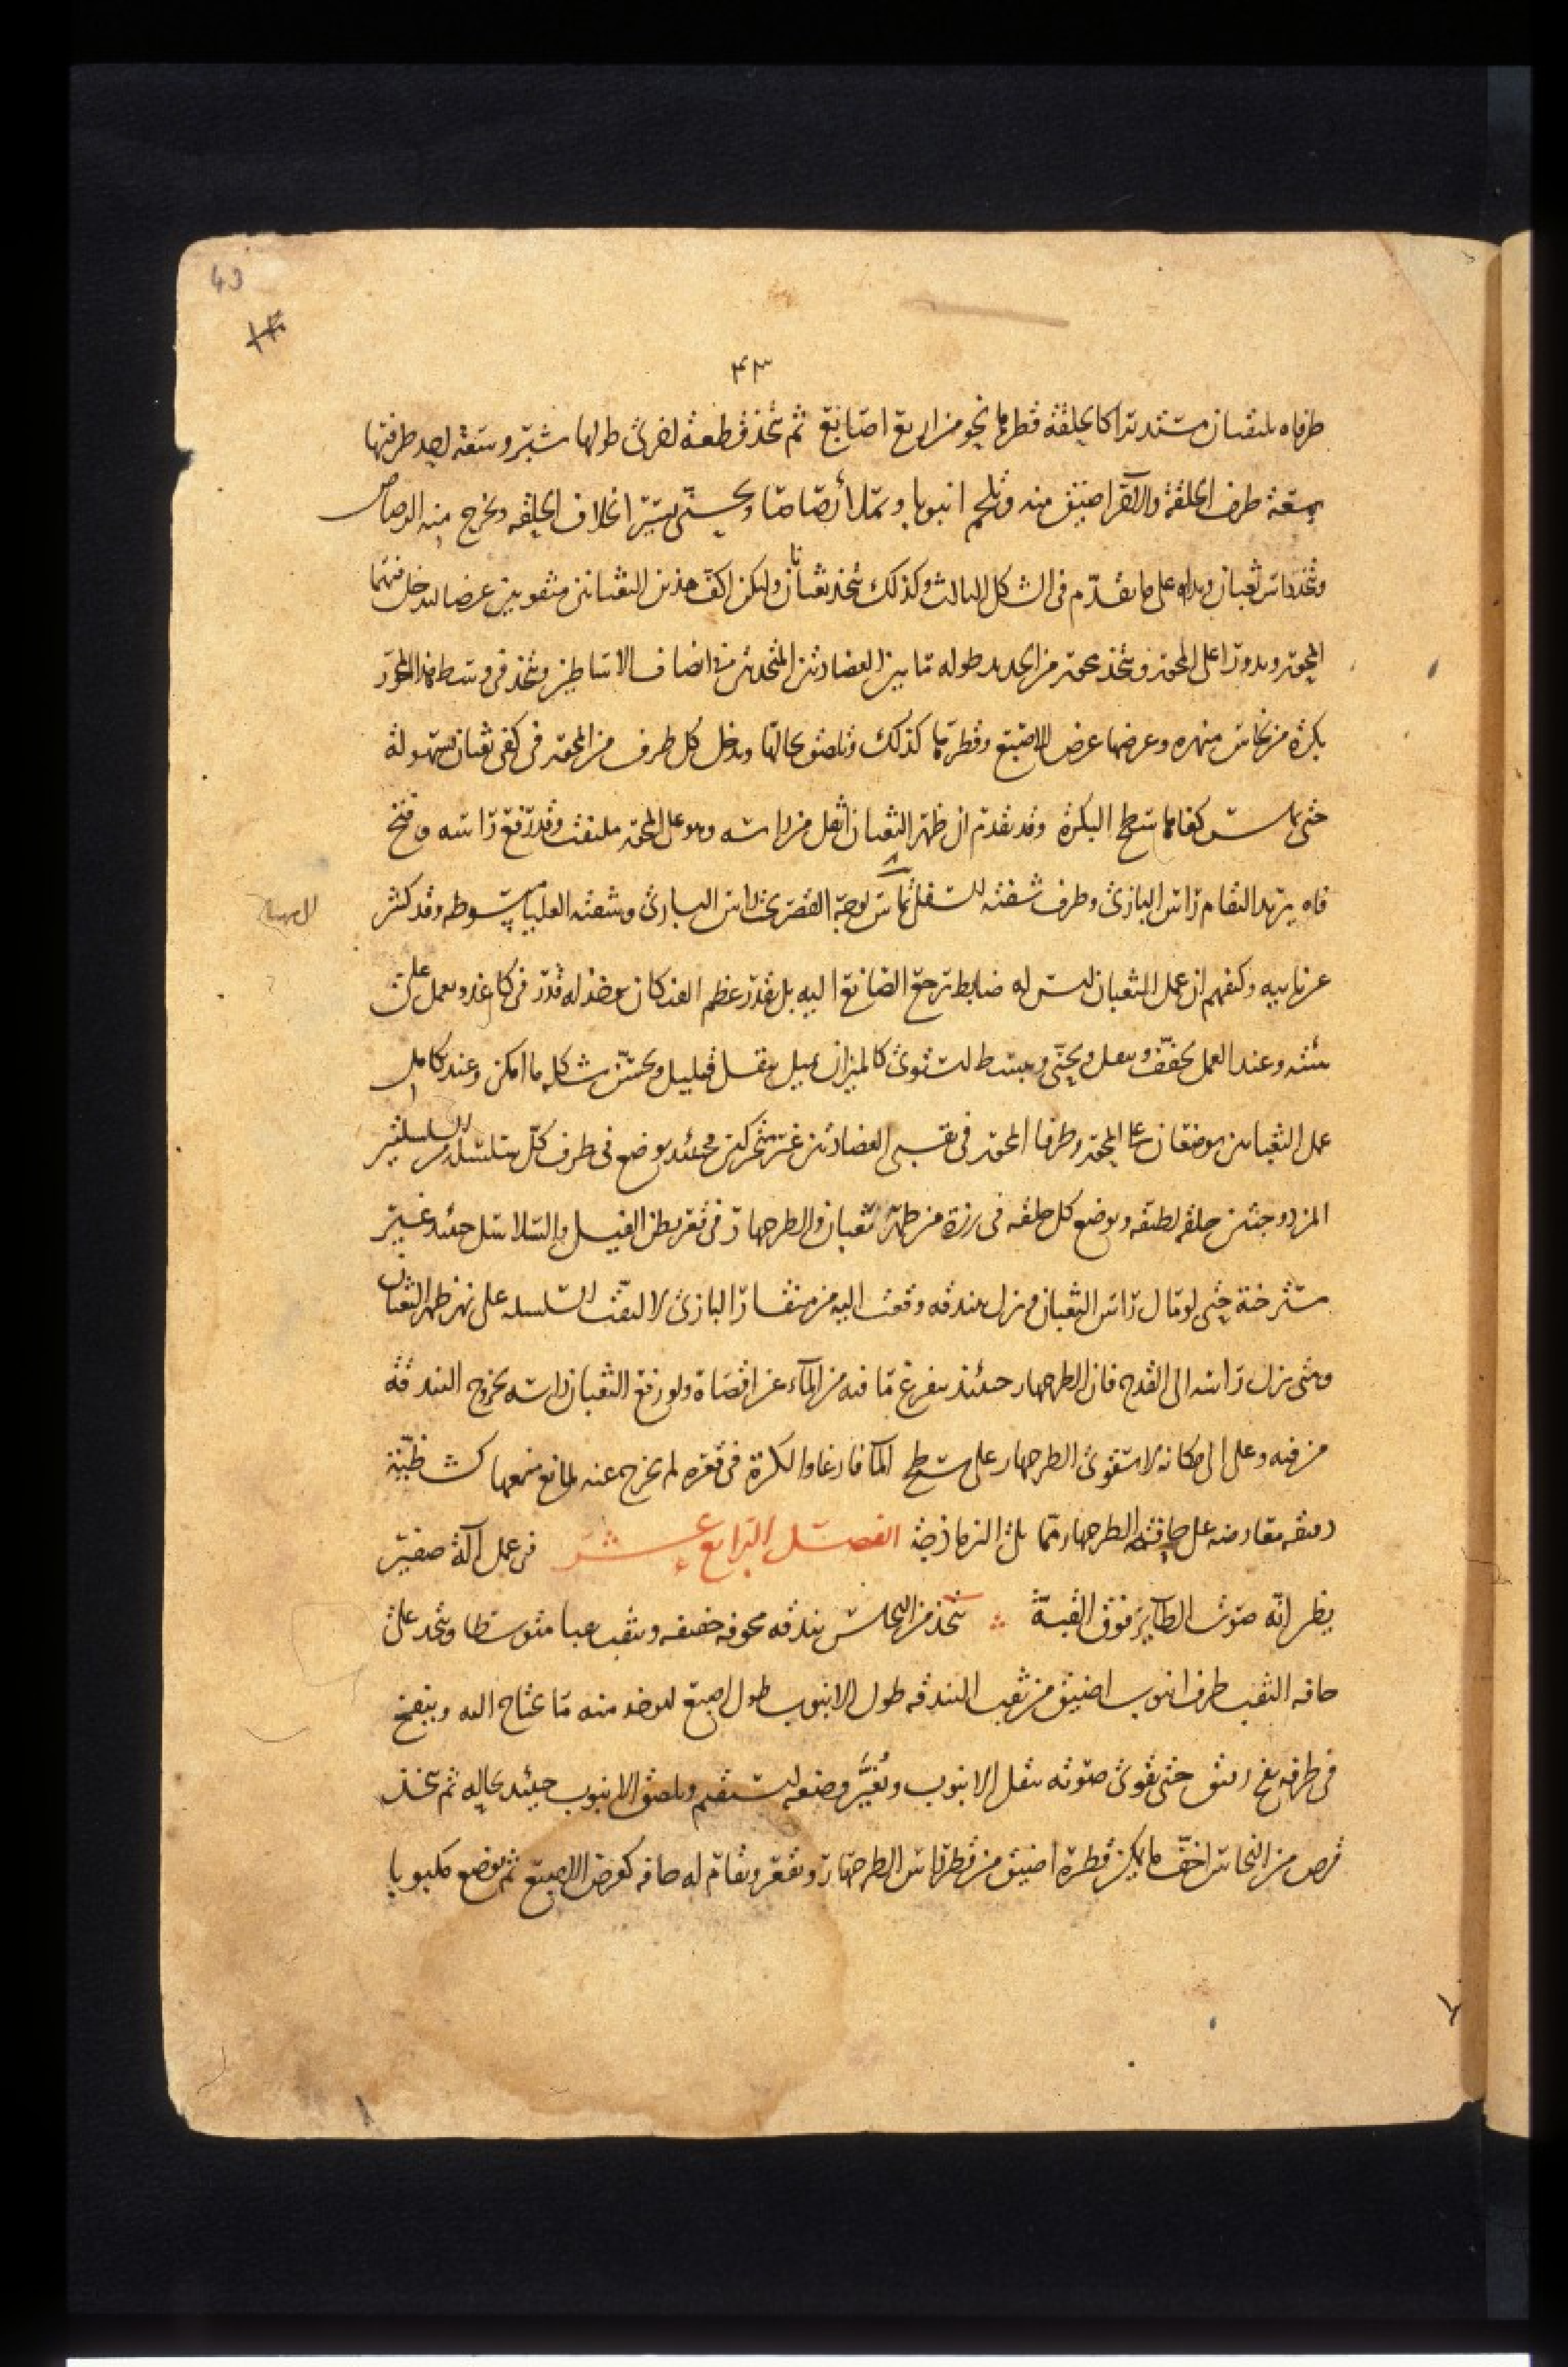 43
۴۳
طرفاه يلتقيان مستديرا كالحلقة قطرها نحو من اربع اصابع ثم تتخذ قطعة اخرى طولها شبر وسعة احد طرفيها
بسعة طرف الحلقة والآخر اضيق منه وتلحم انبوبا وتملأ رصاصا ويحنى يسيرا خلاف الحلقه ويخرج منه الرصاص
وتتخذ راس ثعبان ويداه على ما تقدم فى الشكل الثالث وكذلك يتخذ ثعبانا ثان وليكن اكف هذين الثعبانين مثقوبين عرضا ليدخل فيهما
المحور ويدورا على المحور ويتخذ محور من الحديد طوله ما بين العضادتين المتخذتين من انصاف الاساطين ويتخذ فى وسط هذا المحور
بكرة من نحاس وعرضها عرض الاصبع وقطرها كذلك وتلصق بحالها ويدخل كل طرف من المحور فى كفى ثعبان بسهولة
حتى يماس كفاهما سطح البكرة وقد تقدم ان ظهر الثعبان اثقل من راسه وهو على المحور ملتفت وقد رفع راسه وفتح
فاه يريد التقام راس البازى وطرف شفته السفلى تماس لوحة القصر تحت راس البازى وشفته العليا مبسوطه وقد كشر
عن نابيه وليفهم ان عمل الثعبان ليس له ضابط يرجع الصانع اليه بل بقدر عظم الفنكان يوخذ له قدر فى كاغد ويعمل على
وعند العمل يخفف ويثقل ويحنى ويبسط ليستوى كالميزان يميل بثقل قليل ويحسن شكله ما امكن وعند كامل
عمل الثعبانين يوضعان على المحور وطرفا المحور فى ثقبى العضادتين غير متحركين وحينئذ يوضع فى طرف كل سلسلة من السلسلتين
المزدوجتين حلقه لطيفه ويوضع كل حلقه فى رزة من ظهر ثعبان والطرجهار فى قعر بطن الفيل والسلاسل حينئذ غير
مسترخية حتى لو مال راس الثعبان ونزل ببندقه وقعت اليه من منقار البازى لالتفت السلسله على ظهر الثعبان
ومتى نزل راسه الى القدح فان الطرجهار حينئذ يفرغ ما فيه من الماء عن اقصاه ولو رفع الثعبان راسه بخروج البندقة
من فيه وعلى الى مكانه لاستوى الطرجهار على سطح المآ فارغا والكرة فى قعره لم يخرج عنه لمانع يمنعها كشظية
دقيقه معارضه على حافته الطرجهار مما يلى النرماذجة الفصل الرابع عشر فى عمل آلة صفير
يظن انه صوت الطاير فوق القبة يتخذ من النحاس بندقه مجوفه خفيفه ويثقب ثقبا متوسطا ويتخذ على
حافه الثقب طرف انبوب اضيق من ثقب البندقه طول الانبوب طول اصبع ليوخذ منه ما يحتاج اليه وينفخ
فى طرفه حتى يقوى صوته بنقل الانبوب ويغير وضعه ليستقيم ويلصق الانبوب حينئذ بحاله ثم يتخذ
قرص من النحاس اخف ما يمكن قطره اضيق من قطر راس الطرجهار ويقعر ويقام له حافه كعرض الاصبع ثم يوضع مكبوبا